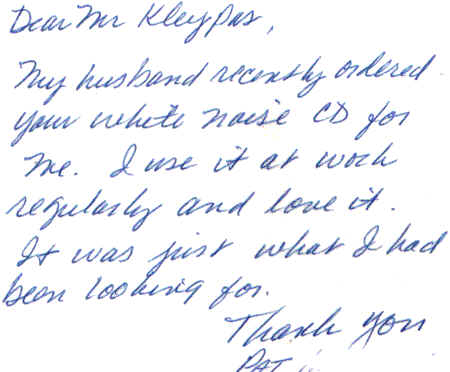 Dear Mr Kleypas,
My husband recently ordered
your white noise CD for
me. I use it at work
regularly and love it.
It was just what I had
been looking for.
Thank you
PAT